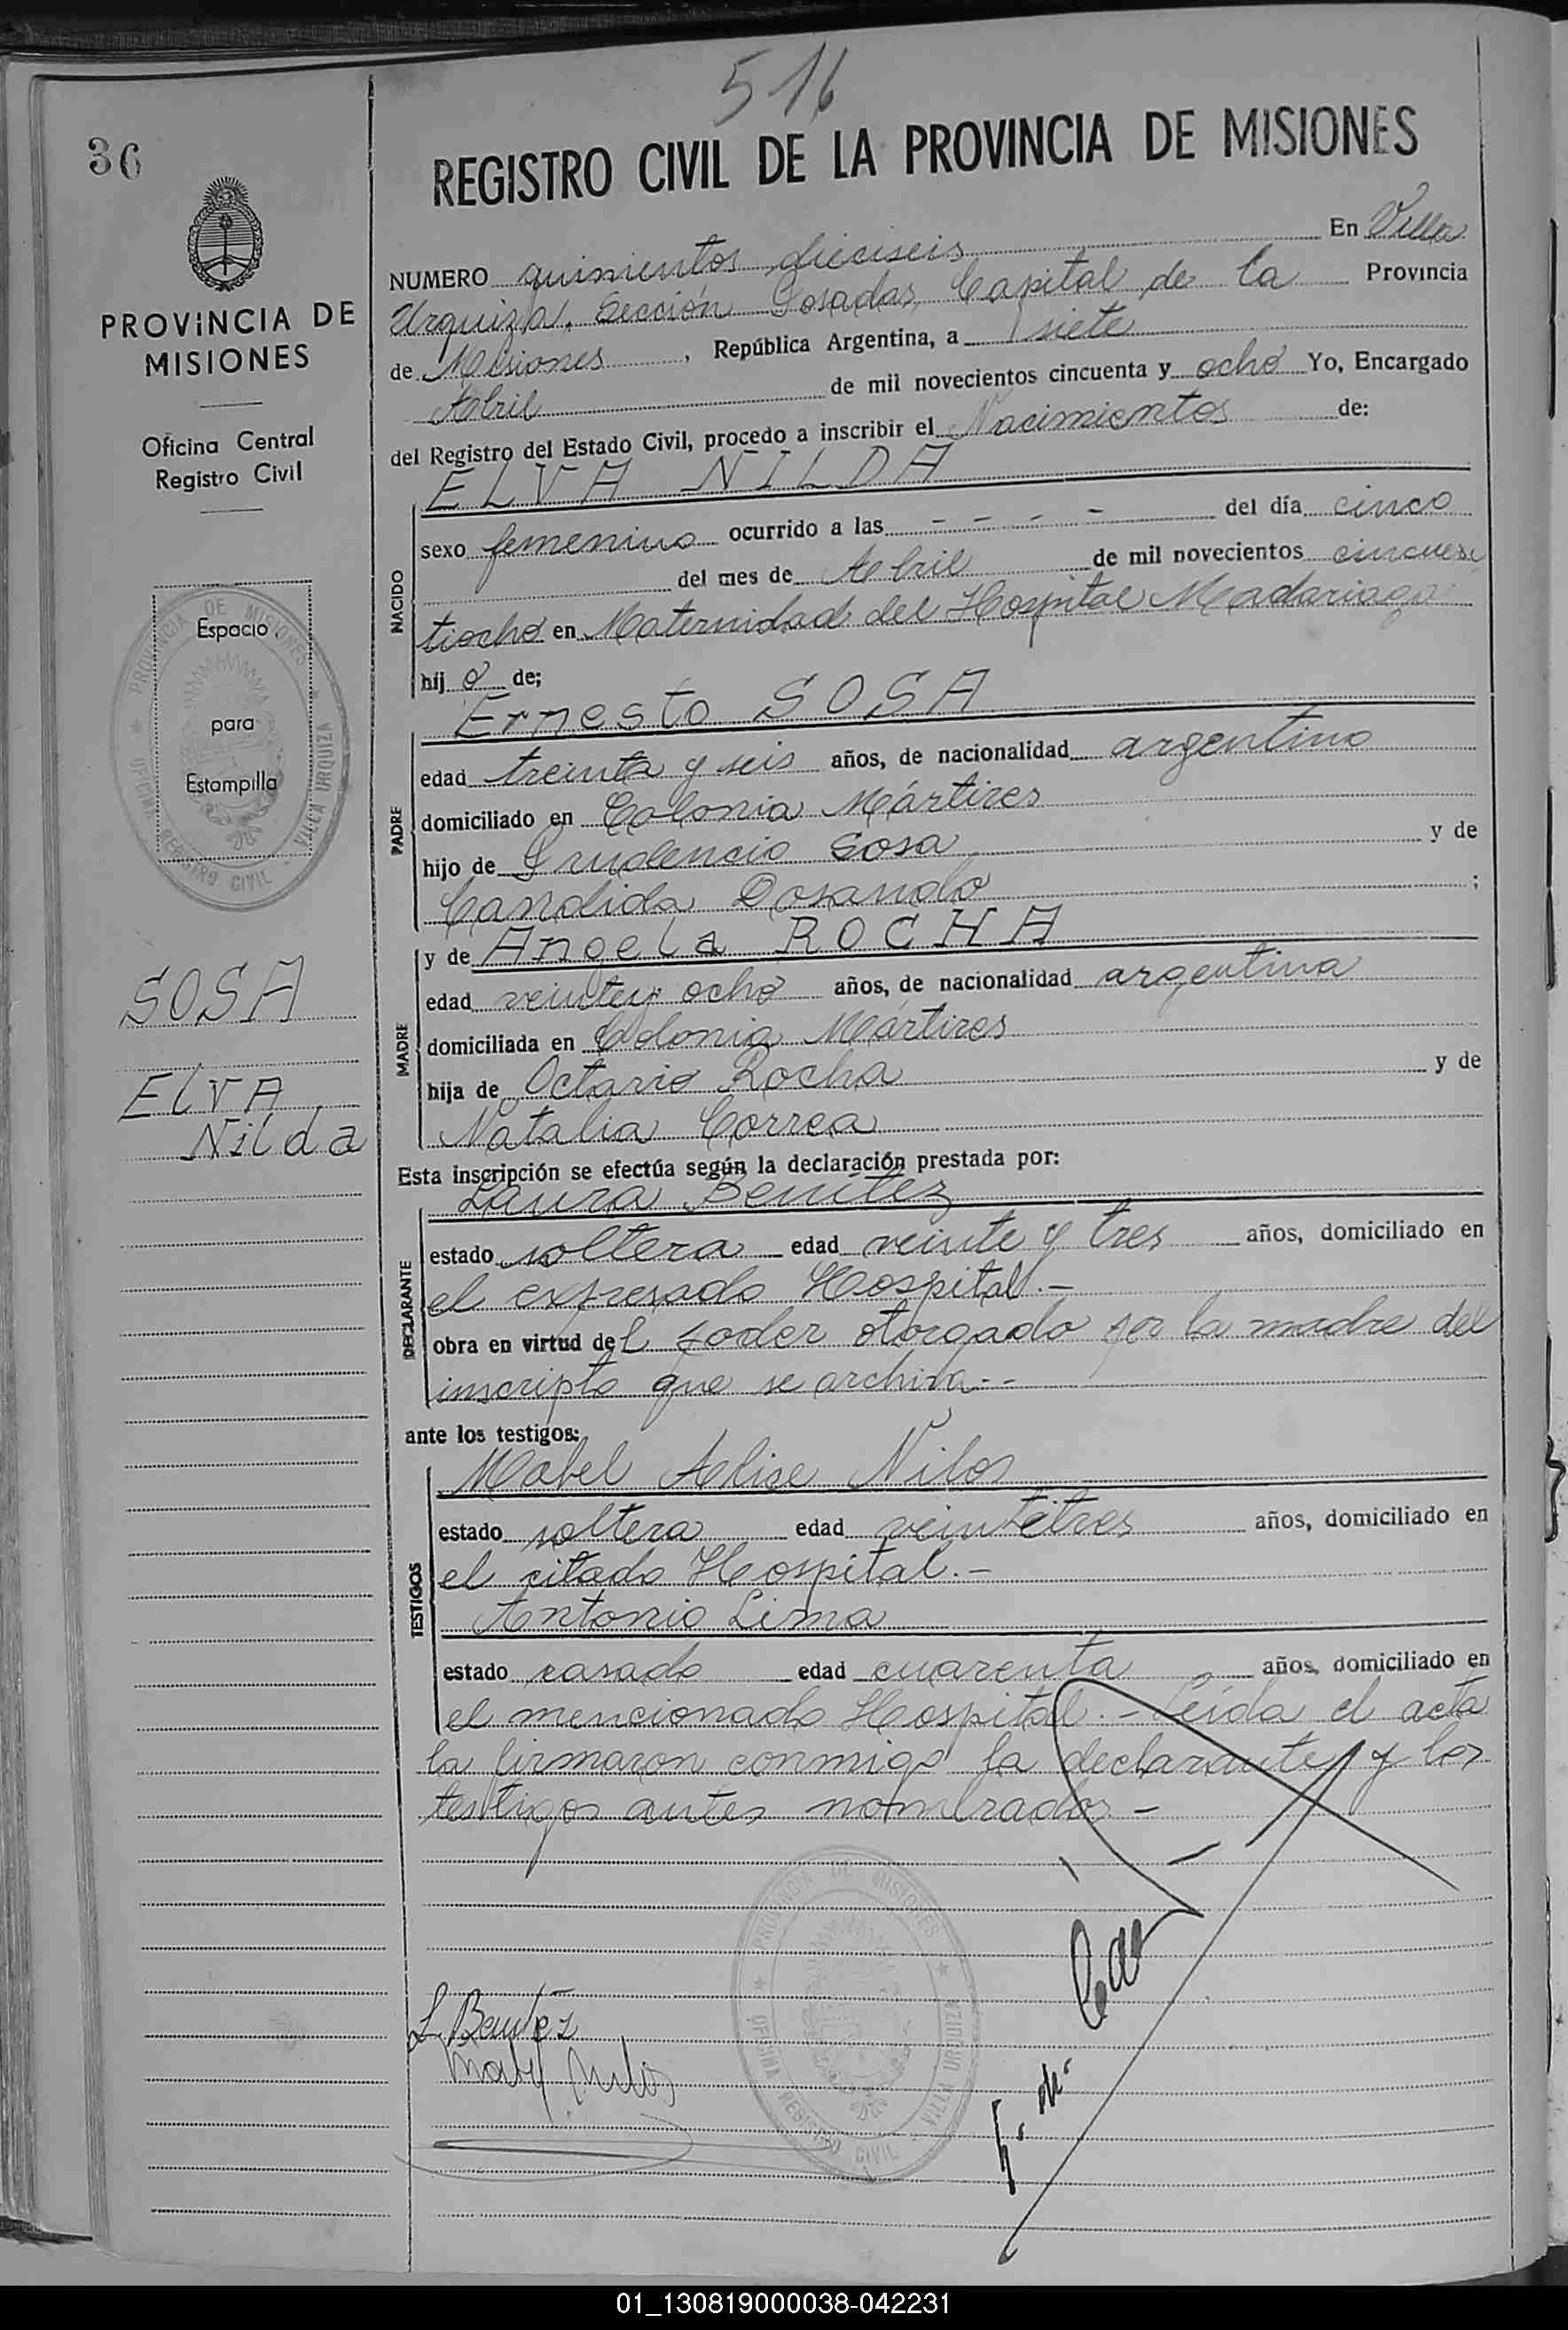 516
36
REGISTRO CIVIL DE LA PROVINCIA DE MISIONES
PROVINCIA DE
MISIONES
Oficina Central
Registro Civil
NUMERO quinientos dieciseis En Villa
Urquiza. Sección Posadas, Capital de la Provincia
de Misiones, República Argentina, a siete
Abril de mil novecientos cincuenta y ocho Yo, Encargado
del Registro del Estado Civil, procedo a inscribir el Nacimientos de:
ELVA NILDA
NACIDO
sexo femenino ocurrido a las - - - - del día cinco
del mes de Abril de mil novecientos cincuen
tiocho en Maternidad del Hospital Madariaga
hij o de;
Espacio
para
Estampilla
PROVINCIA DE MISIONES
OFICINA REGISTRO CIVIL VILLA URQUIZA
Ernesto SOSA
PADRE
edad treinta y seis años, de nacionalidad argentino
domiciliado en Colonia Mártires
hijo de Prudencio Sosa y de
Candida Dosando ;
y de Angela ROCHA
MADRE
edad veintey ocho años, de nacionalidad argentina
domiciliada en Colonia Mártires
hija de Octavio Rocha y de
Natalia Correa
SOSA
ELVA
Nilda
Esta inscripción se efectúa según la declaración prestada por:
Laura Benítez
DECLARANTE
estado soltera edad veinte y tres años, domiciliado en
el expresado Hospital.-
obra en virtud del poder otorgado por la madre del
inscripto que se archiva.--
ante los testigos:
Mabel Alise Nilos
TESTIGOS
estado soltera edad veintetres años, domiciliado en
el citado Hospital.-
Antonio Lima
estado casado edad cuarenta años, domiciliado en
el mencionado Hospital.- Leída el acta
la firmaron conmigo la declarante y los
testigos antes nombrados-
PROVINCIA DE MISIONES
OFICINA REGISTRO CIVIL VILLA URQUIZA
L. Benítez
Mabel Nilos
01_130819000038-042231